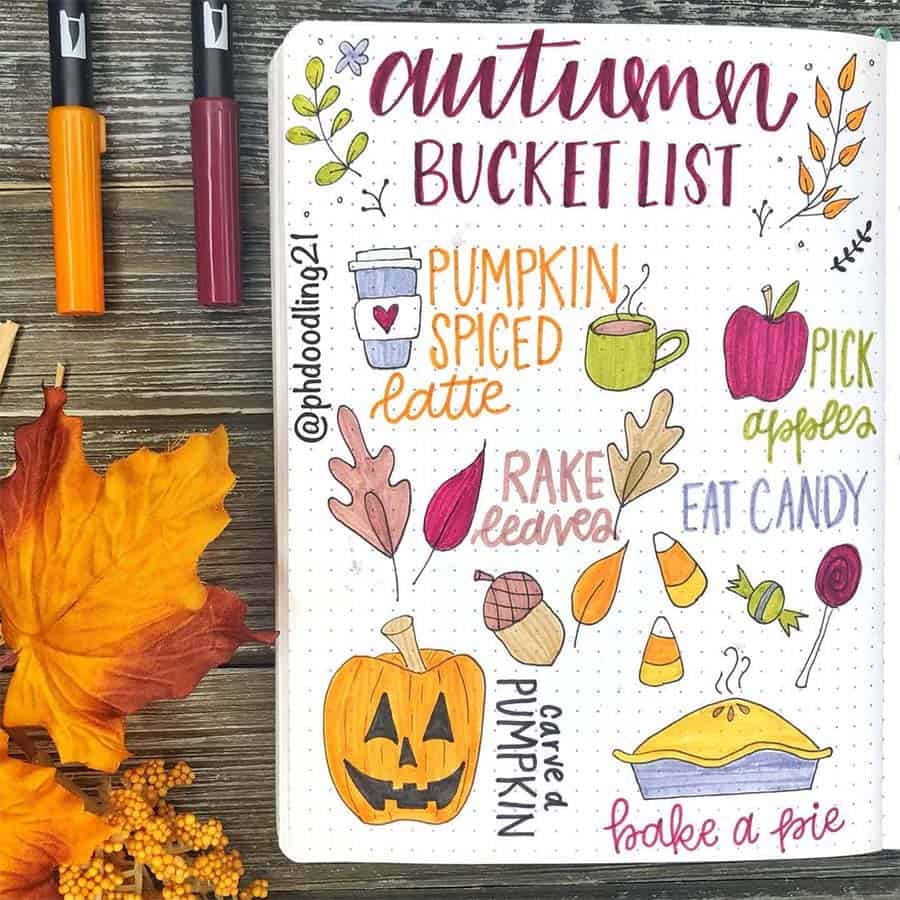 autumn
BUCKET LIST
@phdoodling21
PUMPKIN
SPICED
latte
PICK
apples
RAKE
leaves
EAT CANDY
carve a
PUMPKIN
bake a pie